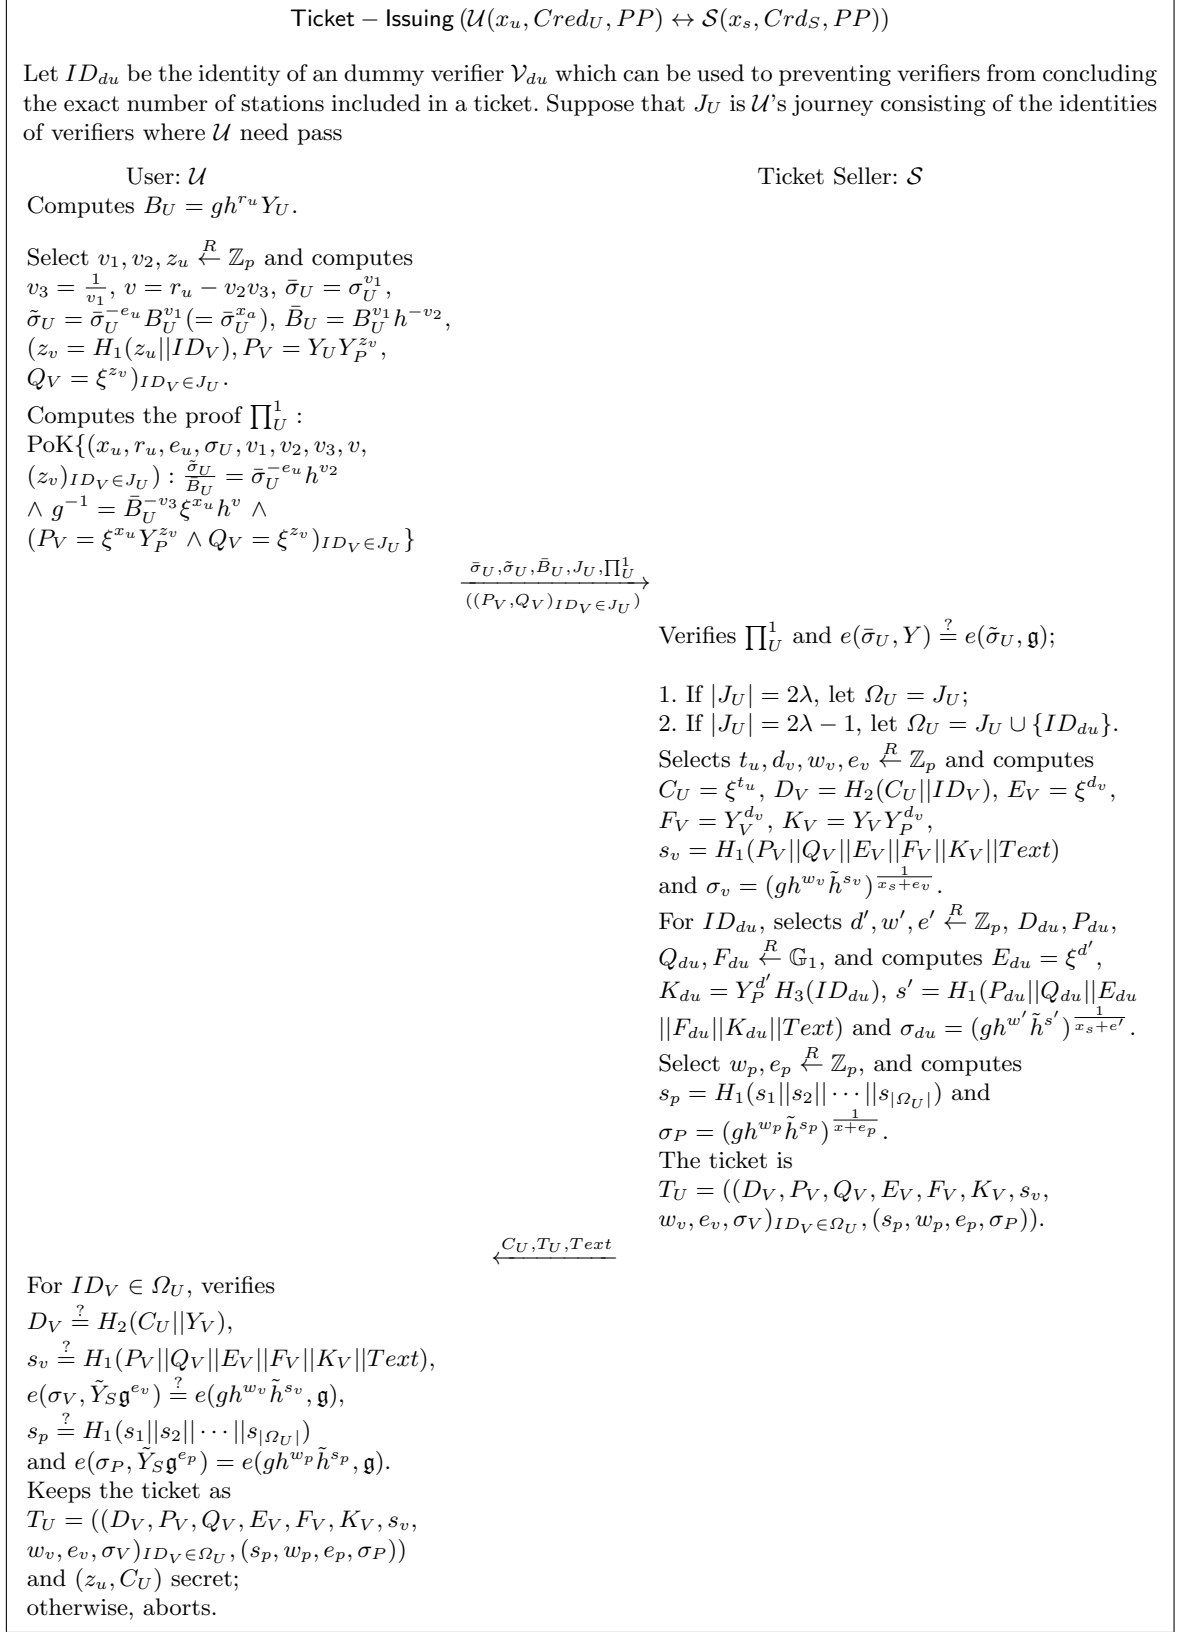 Ticket − Issuing (𝒰(x_u, Cred_U, PP) ↔ 𝒮(x_s, Crd_S, PP))
Let ID_{du} be the identity of an dummy verifier 𝒱_{du} which can be used to preventing verifiers from concluding
the exact number of stations included in a ticket. Suppose that J_U is 𝒰's journey consisting of the identities
of verifiers where 𝒰 need pass
User: 𝒰
Ticket Seller: 𝒮
Computes B_U = gh^{r_u}Y_U.
Select v_1, v_2, z_u ←^R ℤ_p and computes
v_3 = \frac{1}{v_1}, v = r_u − v_2v_3, σ̄_U = σ_U^{v_1},
σ̃_U = σ̄_U^{−e_u} B_U^{v_1}(= σ̄_U^{x_a}), B̄_U = B_U^{v_1}h^{−v_2},
(z_v = H_1(z_u||ID_V), P_V = Y_U Y_P^{z_v},
Q_V = ξ^{z_v})_{ID_V∈J_U}.
Computes the proof ∏_U^1 :
PoK{(x_u, r_u, e_u, σ_U, v_1, v_2, v_3, v,
(z_v)_{ID_V∈J_U}) : \frac{σ̃_U}{B̄_U} = σ̄_U^{−e_u}h^{v_2}
∧ g^{−1} = B̄_U^{−v_3}ξ^{x_u}h^v ∧
(P_V = ξ^{x_u}Y_P^{z_v} ∧ Q_V = ξ^{z_v})_{ID_V∈J_U}}
σ̄_U,σ̃_U,B̄_U,J_U,∏_U^1
((P_V,Q_V)_{ID_V∈J_U})
Verifies ∏_U^1 and e(σ̄_U, Y) ≟ e(σ̃_U, 𝔤);
1. If |J_U| = 2λ, let Ω_U = J_U;
2. If |J_U| = 2λ − 1, let Ω_U = J_U ∪ {ID_{du}}.
Selects t_u, d_v, w_v, e_v ←^R ℤ_p and computes
C_U = ξ^{t_u}, D_V = H_2(C_U||ID_V), E_V = ξ^{d_v},
F_V = Y_V^{d_v}, K_V = Y_V Y_P^{d_v},
s_v = H_1(P_V||Q_V||E_V||F_V||K_V||Text)
and σ_v = (gh^{w_v}h̃^{s_v})^{\frac{1}{x_s+e_v}}.
For ID_{du}, selects d′, w′, e′ ←^R ℤ_p, D_{du}, P_{du},
Q_{du}, F_{du} ←^R 𝔾_1, and computes E_{du} = ξ^{d′},
K_{du} = Y_P^{d′}H_3(ID_{du}), s′ = H_1(P_{du}||Q_{du}||E_{du}
||F_{du}||K_{du}||Text) and σ_{du} = (gh^{w′}h̃^{s′})^{\frac{1}{x_s+e′}}.
Select w_p, e_p ←^R ℤ_p, and computes
s_p = H_1(s_1||s_2||···||s_{|Ω_U|}) and
σ_P = (gh^{w_p}h̃^{s_p})^{\frac{1}{x+e_p}}.
The ticket is
T_U = ((D_V, P_V, Q_V, E_V, F_V, K_V, s_v,
w_v, e_v, σ_V)_{ID_V∈Ω_U}, (s_p, w_p, e_p, σ_P)).
C_U,T_U,Text
For ID_V ∈ Ω_U, verifies
D_V ≟ H_2(C_U||Y_V),
s_v ≟ H_1(P_V||Q_V||E_V||F_V||K_V||Text),
e(σ_V, Ỹ_S𝔤^{e_v}) ≟ e(gh^{w_v}h̃^{s_v}, 𝔤),
s_p ≟ H_1(s_1||s_2||···||s_{|Ω_U|})
and e(σ_P, Ỹ_S𝔤^{e_p}) = e(gh^{w_p}h̃^{s_p}, 𝔤).
Keeps the ticket as
T_U = ((D_V, P_V, Q_V, E_V, F_V, K_V, s_v,
w_v, e_v, σ_V)_{ID_V∈Ω_U}, (s_p, w_p, e_p, σ_P))
and (z_u, C_U) secret;
otherwise, aborts.